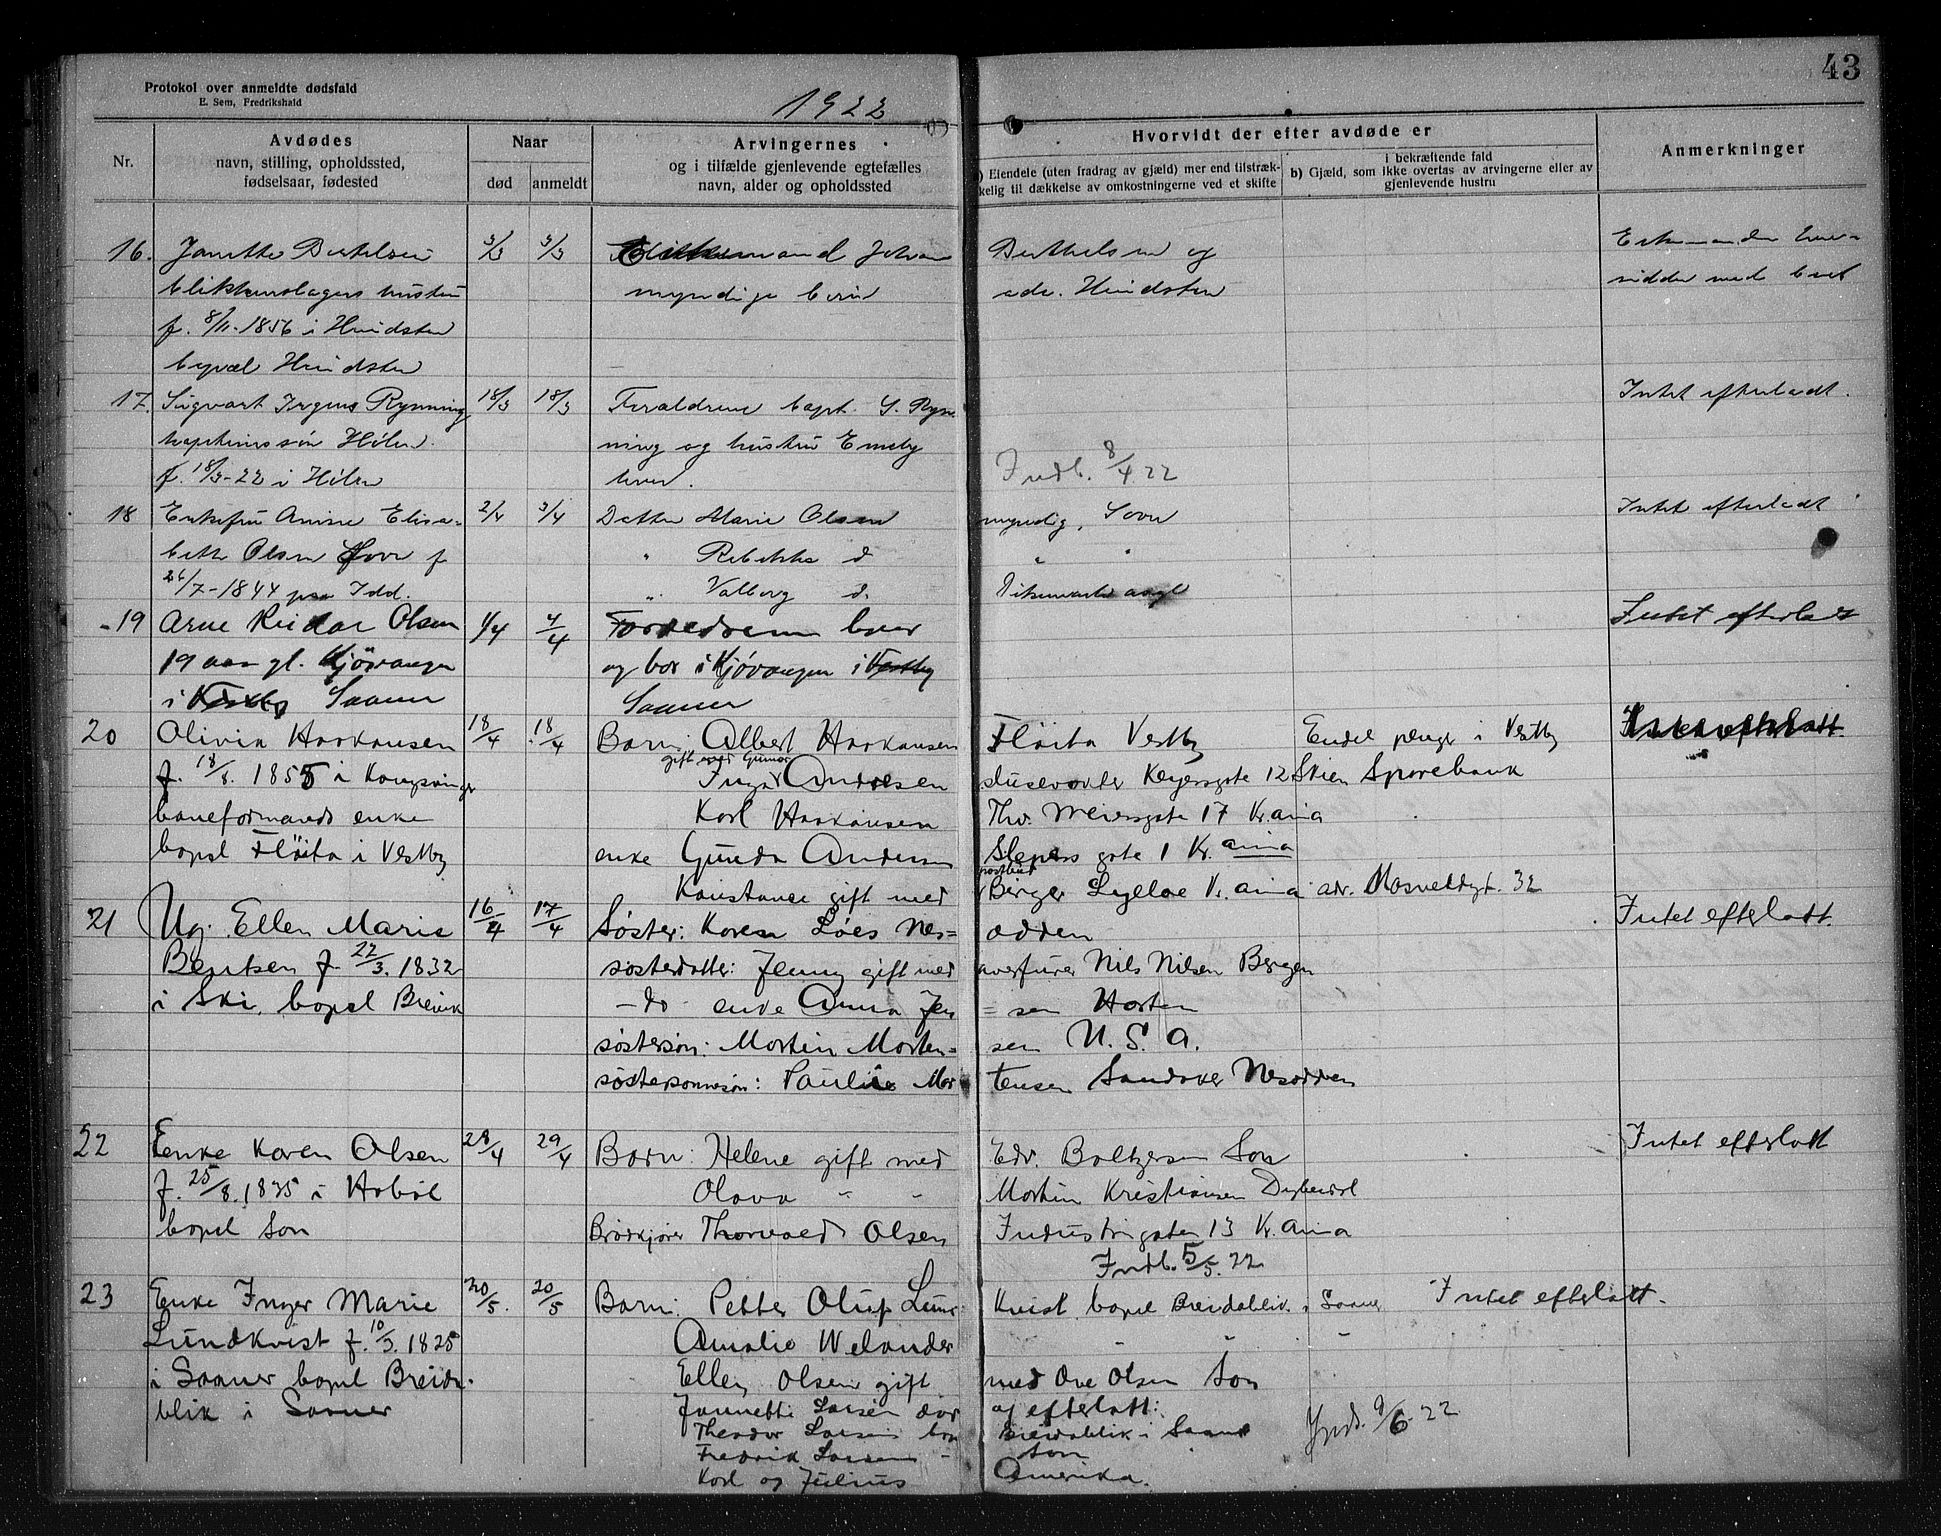 43
Protokol over anmeldte dødsfald
E. Sem, Fredrikshald
1922
Nr.
Avdødes
navn, stilling, opholdssted,
fødselsaar, fødested
Naar
død
anmeldt
Arvingernes
og i tilfælde gjenlevende egtefælles
navn, alder og opholdssted
Hvorvidt der efter avdøde er
a) Eiendele (uten fradrag av gjæld) mer end tilstræk-
kelig til dækkelse av omkostningerne ved et skifte
i bekræftende fald
b) Gjæld, som ikke overtas av arvingerne eller av
gjenlevende hustru
Anmerkninger
16. Janette Bertelsen 3/3 3/3 Johan Berthelsen og
blikkenslagers hustru myndige børn adr. Hvidsten
f. 8/11-1856 i Hvidsten
bopæl Hvidsten
Enkemanden hen-
sidder med boet
17. Sigvart Irgens Rynning 18/3 18/3 Forældrene kapt. S. Ryn-
kapteinssøn Hølen. ning og hustru
f. 18/3-22 i Hølen
Intet efterladt.
Indb. 8/4 22
18 Enkefru Anine Elisa- 2/4 3/4 Datter Marie Olsen myndig, Sovn
beth Olsen f " Rebekka d " "
26/7-1844 paa Idd. " Valborg d.
Intet efterladt
19 Arne Reidar Olsen 1/4 4/4 Foreldrene lever
19 aar gl. Kjøvangen og bor i Kjøvangen i Vestby
i Vestby Saaner Saaner
Intet efterladt
20 Olivia Haakansen 18/4 18/4 Barn: Albert Haakansen Fløita Vestby Endel penge i Vestby
gift med Gunar
f. 18/8. 1855 i Kongsvinger Inga Andresen Keysersgate 12 Skien Sparebank
baneformands enke Karl Haakansen Thv. Meiersgate 17 Kr.ania
bopel Fløita i Vestby enke Gunda Andersen gate 1 Kr. ania
Konstance gift med Birger Kr. ania adr. 32
21 Ug. Ellen Marie 16/4 17/4 Søster: Karen Løes Nes= odden
Bentsen f. 22/3. 1832 søsterdatter: Jenny gift med Nils Nilsen Bergen
i Ski, bopel Breivik - do - enke Anna Jen = sen Horten
søstersøn: Martin Morten= sen U.S.A.
søstersonnesøn: Paulie Mor tensen Sandaker Nesodden
Intet efterlatt.
22 Enke Karen Olsen 28/4 29/4 Barn: Helene gift med Edv. Boltzersen Son
f. 25/8. 1835 i Hobøl Olava " " Martin Kristiansen
bopel Son Brødkjører Thorvald Olsen Industrigaten 13 Kr. ania
Intet efterlatt
Indb. 5/5. 22
23 Enke Inger Marie 20/5. 20/5 Barn: Petter Oluf Lund- kvist, bopel Breidablik i Saaner Intet efterlatt.
Lundkvist f. 10/3. 1825 Amalie Welander " " "
i Saaner bopel Breida- Ellen Olsen gift med Ove Olsen Son
blik i Saaner Jannette Larsen død og efterlatt:
Theodor Larsen bor Breidablik i Saaner
Fredrik Larsen - Son
Karl og Julius Amerika.
Indb. 9/6. 22